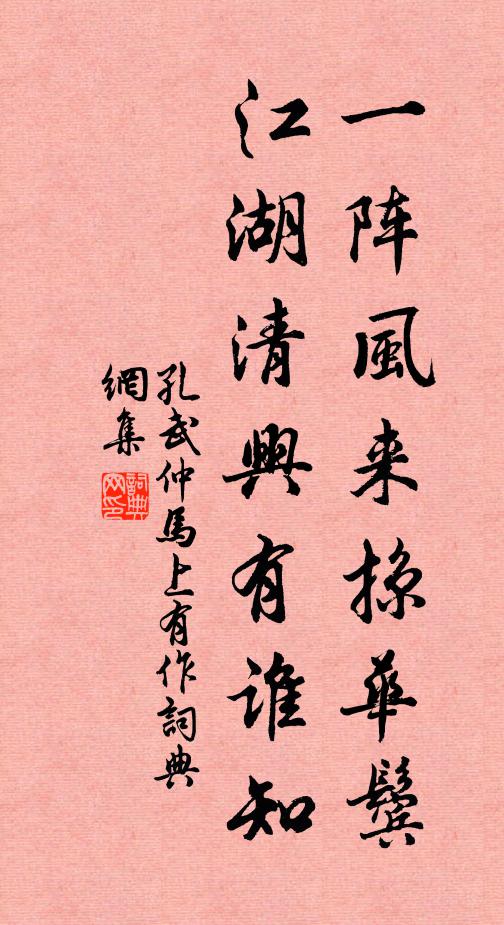 一阵風来掠華鬓
江湖清興有誰知
孔武仲馬上有作詞典
網集
詞典
网印